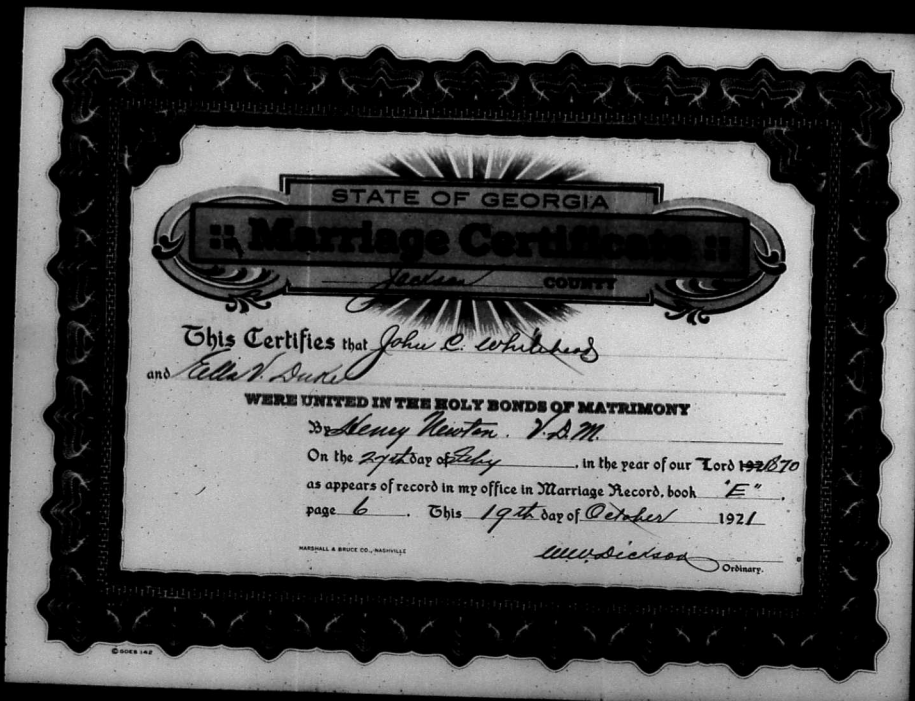 STATE OF GEORGIA
:: Marriage Certificate ::
Jackson COUNTY
This Certifies that John C. Whitehead
and Ella V. Duke
WERE UNITED IN THE HOLY BONDS OF MATRIMONY
By Henry Newton. V.D.M.
On the 27th day of Feby, in the year of our Lord 192 1870
as appears of record in my office in Marriage Record, book "E".
page 6. This 19th day of October 1921
MARSHALL & BRUCE CO., NASHVILLE
W.W. Dickson
Ordinary.
© GOES 142